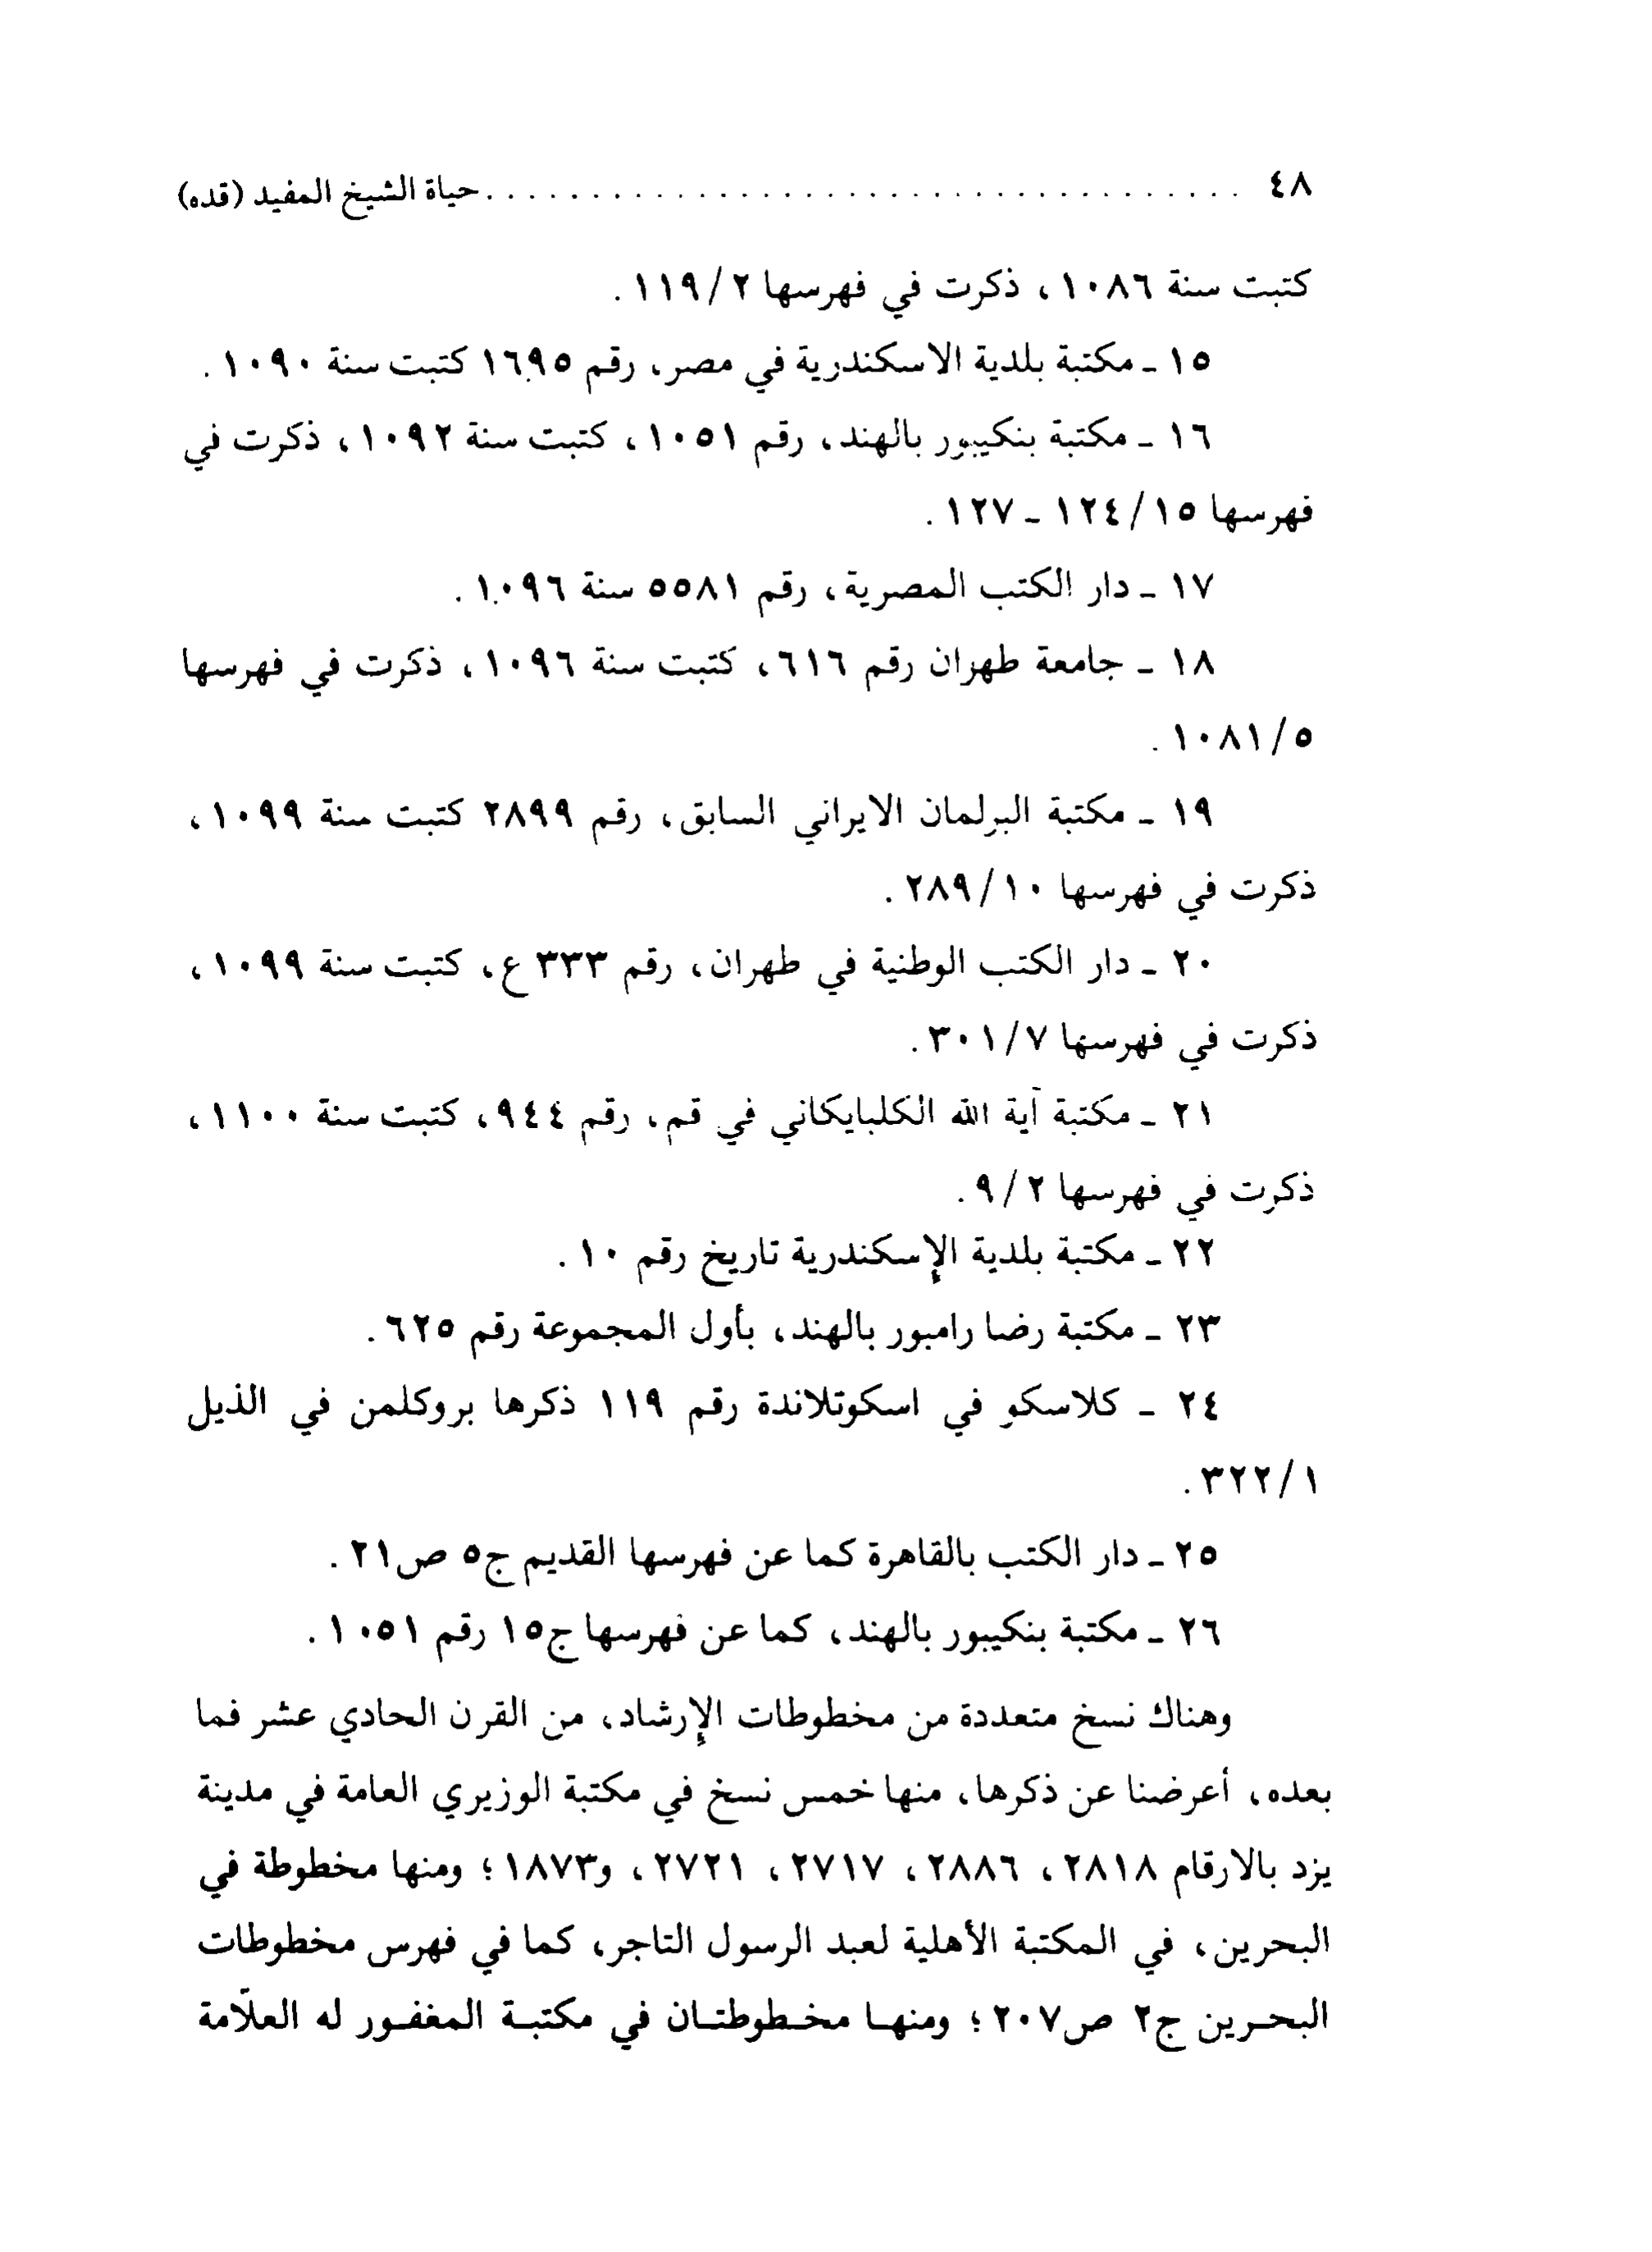 ٤٨ .................................... حياة الشيخ المفيد (قده)
كتبت سنة ١٠٨٦، ذكرت في فهرسها ١١٩/٢.
١٥ ـ مكتبة بلدية الاسكندرية في مصر، رقم ١٦٩٥ كتبت سنة ١٠٩٠.
١٦ ـ مكتبة بنكيپور بالهند، رقم ١٠٥١، كتبت سنة ١٠٩٢، ذكرت في
فهرسها ١٢٤/١٥ ـ ١٢٧.
١٧ ـ دار الكتب المصرية، رقم ٥٥٨١ سنة ١٠٩٦.
١٨ ـ جامعة طهران رقم ٦١٦، كتبت سنة ١٠٩٦، ذكرت في فهرسها
١٠٨١/٥.
١٩ ـ مكتبة البرلمان الايراني السابق، رقم ٢٨٩٩ كتبت سنة ١٠٩٩،
ذكرت في فهرسها ٢٨٩/١٠.
٢٠ ـ دار الكتب الوطنية في طهران، رقم ٣٣٣ ع، كتبت سنة ١٠٩٩،
ذكرت في فهرسها ٣٠١/٧.
٢١ ـ مكتبة آية الله الكلبايكاني في قم، رقم ٩٤٤، كتبت سنة ١١٠٠،
ذكرت في فهرسها ٩/٢.
٢٢ ـ مكتبة بلدية الإسكندرية تاريخ رقم ١٠.
٢٣ ـ مكتبة رضا رامبور بالهند، بأول المجموعة رقم ٦٢٥.
٢٤ ـ كلاسكو في اسكوتلاندة رقم ١١٩ ذكرها بروكلمن في الذيل
٣٢٢/١.
٢٥ ـ دار الكتب بالقاهرة كما عن فهرسها القديم ج٥ ص٢١.
٢٦ ـ مكتبة بنكيبور بالهند، كما عن فهرسها ج١٥ رقم ١٠٥١.
وهناك نسخ متعددة من مخطوطات الإرشاد، من القرن الحادي عشر فما
بعده، أعرضنا عن ذكرها، منها خمس نسخ في مكتبة الوزيري العامة في مدينة
يزد بالارقام ٢٨١٨، ٢٨٨٦، ٢٧١٧، ٢٧٢١، و١٨٧٣؛ ومنها مخطوطة في
البحرين، في المكتبة الأهلية لعبد الرسول التاجر، كما في فهرس مخطوطات
البحـرين ج٢ ص٢٠٧؛ ومنهـا مخـطوطتـان في مكتبـة المغفـور له العلّامة